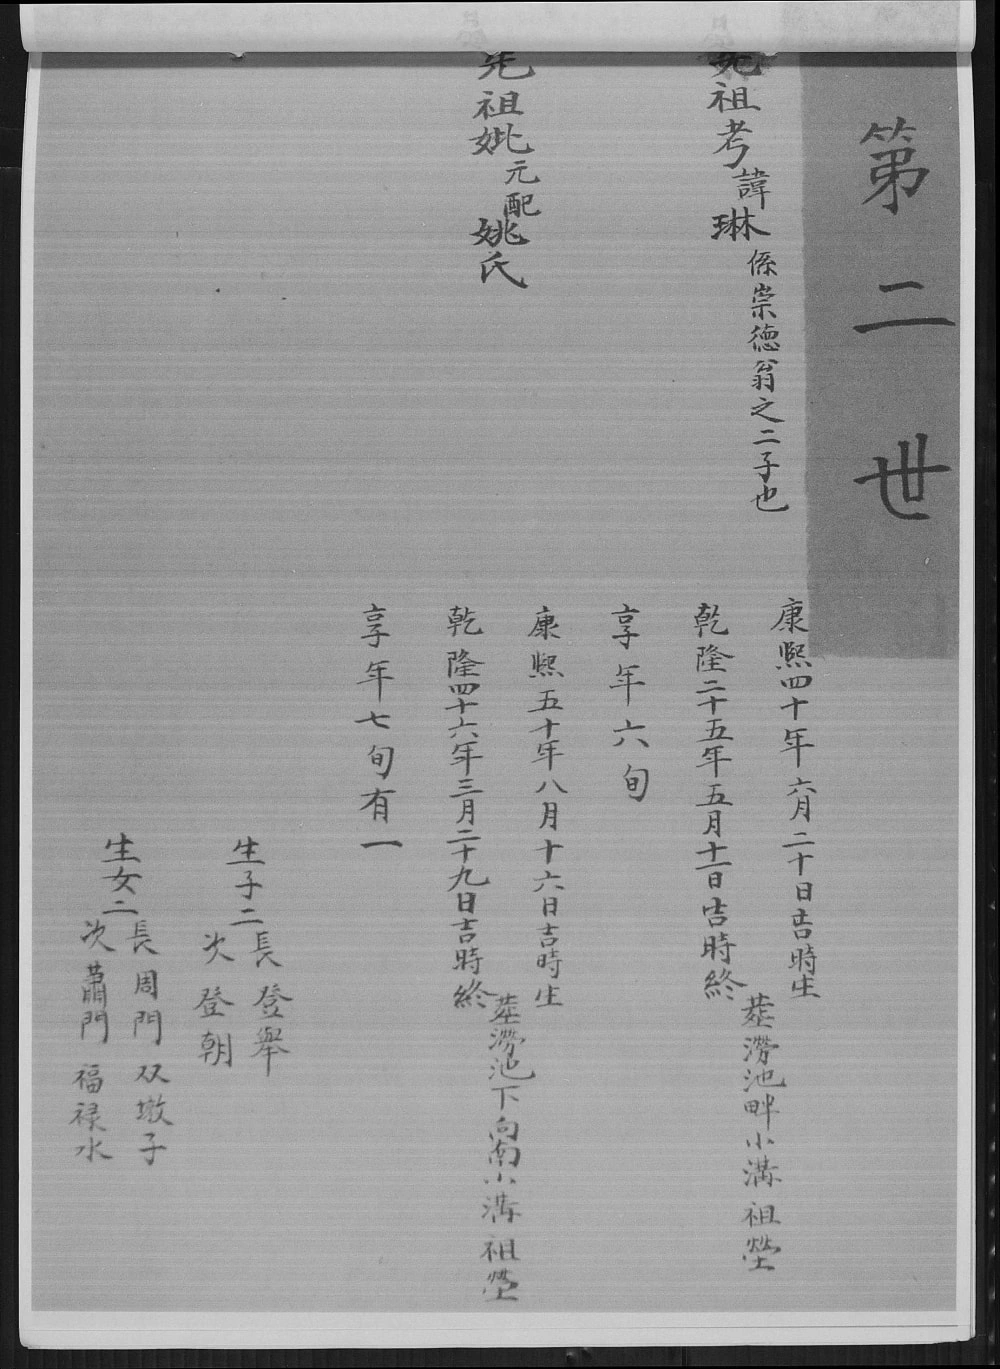 第二世
先祖考諱琳係崇德翁之二子也
康熙四十年六月二十日吉時生
乾隆二十五年五月十一日吉時終
塟澇池畔小溝祖塋
享年六旬
先祖妣元配姚氏
康熙五十年八月十六日吉時生
乾隆四十六年三月二十九日吉時終
塟澇池下向南小溝祖塋
享年七旬有一
生子二
長登舉
次登朝
生女二
長周門双墩子
次蕭門福禄水